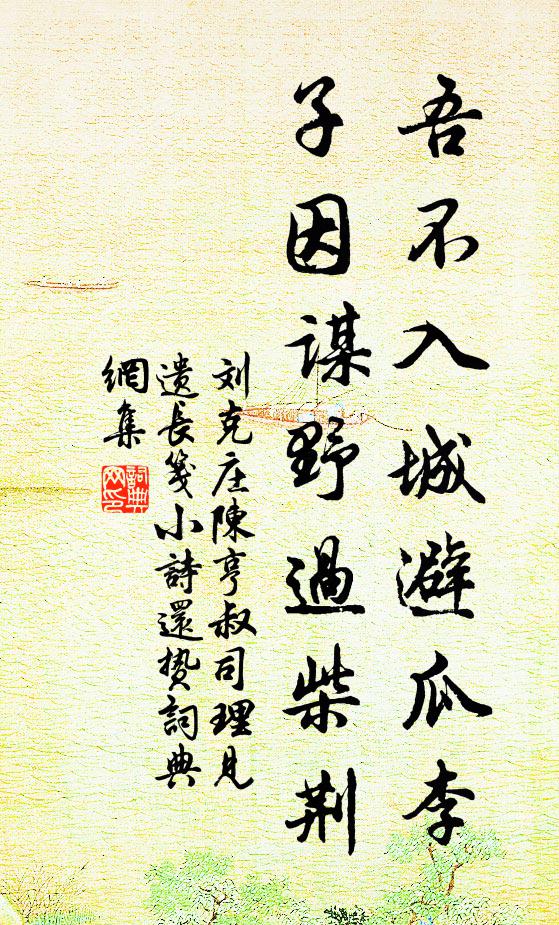 吾不入城避瓜李
子因谋野過柴荆
刘克庄陳亨叔司理見
遺長箋小詩還贄詞典
網集
詞典
网印